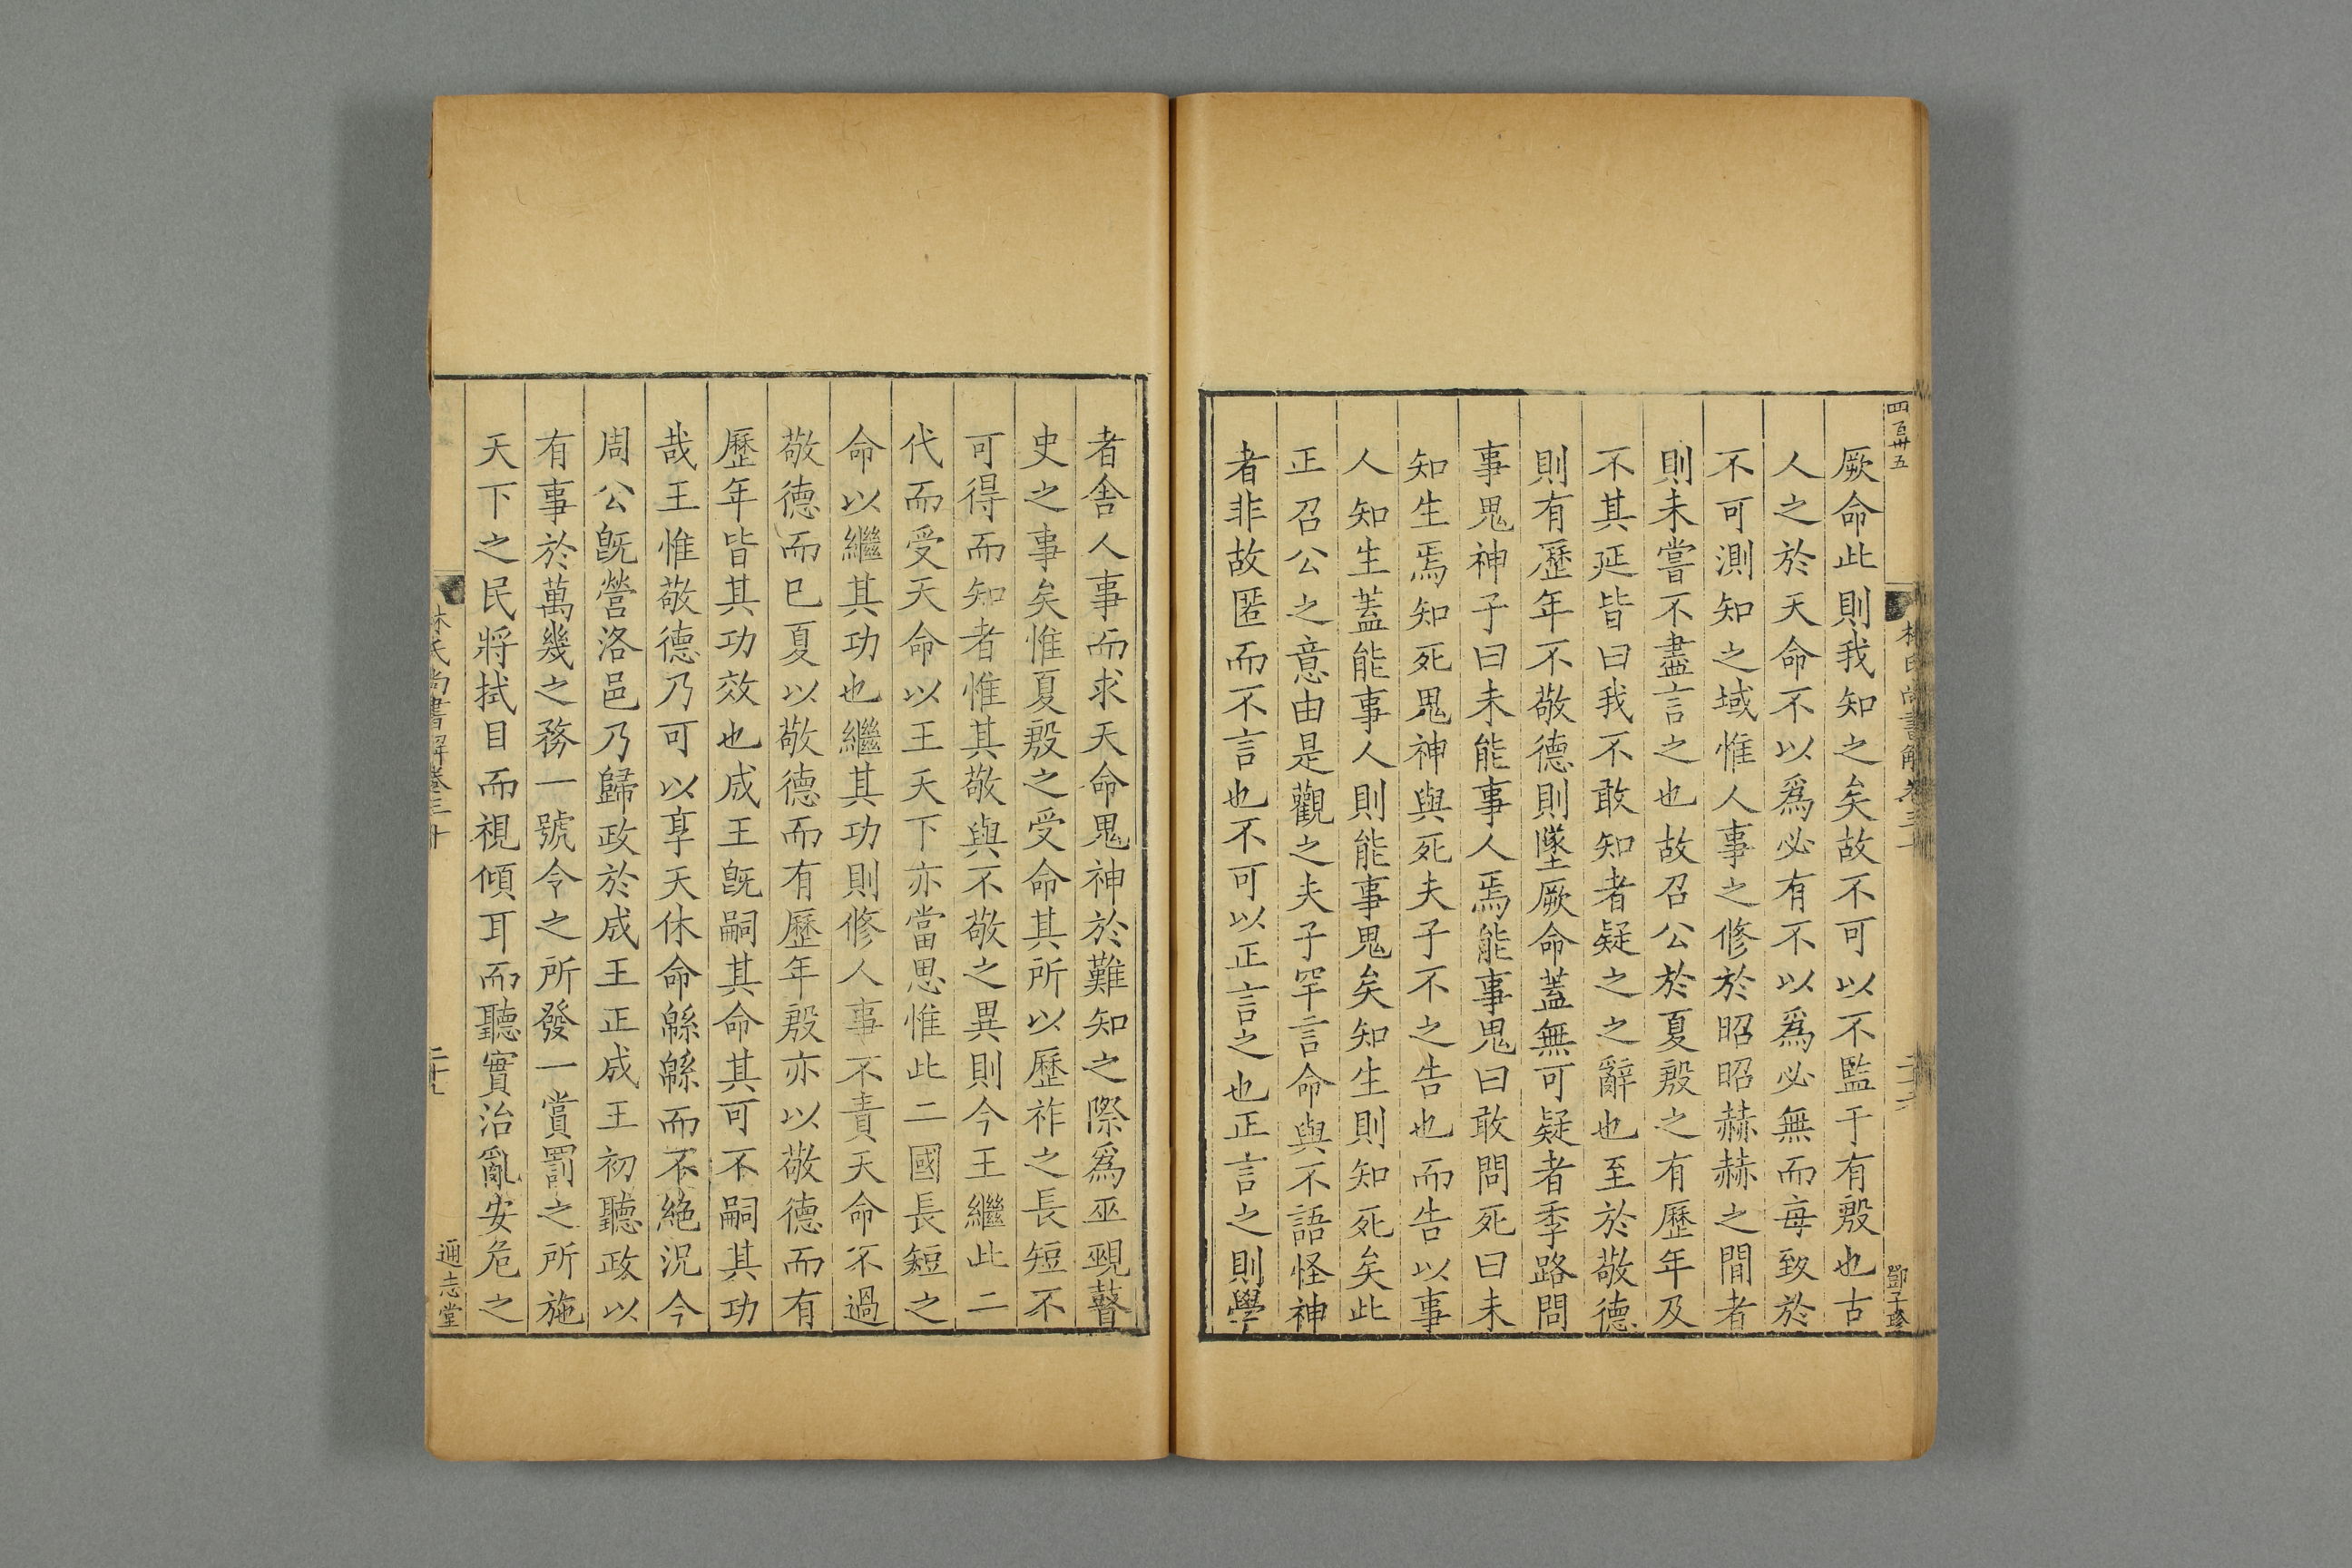 四百卅五
厥命此則我知之矣故不可以不監于有殷也古
人之於天命不以爲必有不以爲必無而每致於
不可測知之域惟人事之修於昭昭赫赫之間者
則未嘗不盡言之也故召公於夏殷之有歷年及
不其延皆曰我不敢知者疑之之辭也至於敬德
則有歷年不敬德則墜厥命蓋無可疑者季路問
事鬼神子曰未能事人焉能事鬼曰敢問死曰未
知生焉知死鬼神與死夫子不之告也而告以事
人知生蓋能事人則能事鬼矣知生則知死矣此
正召公之意由是觀之夫子罕言命與不語怪神
者非故匿而不言也不可以正言之也正言之則學
者舍人事而求天命鬼神於難知之際爲巫覡瞽
史之事矣惟夏殷之受命其所以歷祚之長短不
可得而知者惟其敬與不敬之異則今王繼此二
代而受天命以王天下亦當思惟此二國長短之
命以繼其功也繼其功則修人事不責天命不過
敬德而已夏以敬德而有歷年殷亦以敬德而有
歷年皆其功效也成王旣嗣其命其可不嗣其功
哉王惟敬德乃可以享天休命緜緜而不絶況今
周公旣營洛邑乃歸政於成王正成王初聽政以
有事於萬幾之務一號令之所發一賞罰之所施
天下之民將拭目而視傾耳而聽實治亂安危之
林氏尚書解卷三十
通志堂